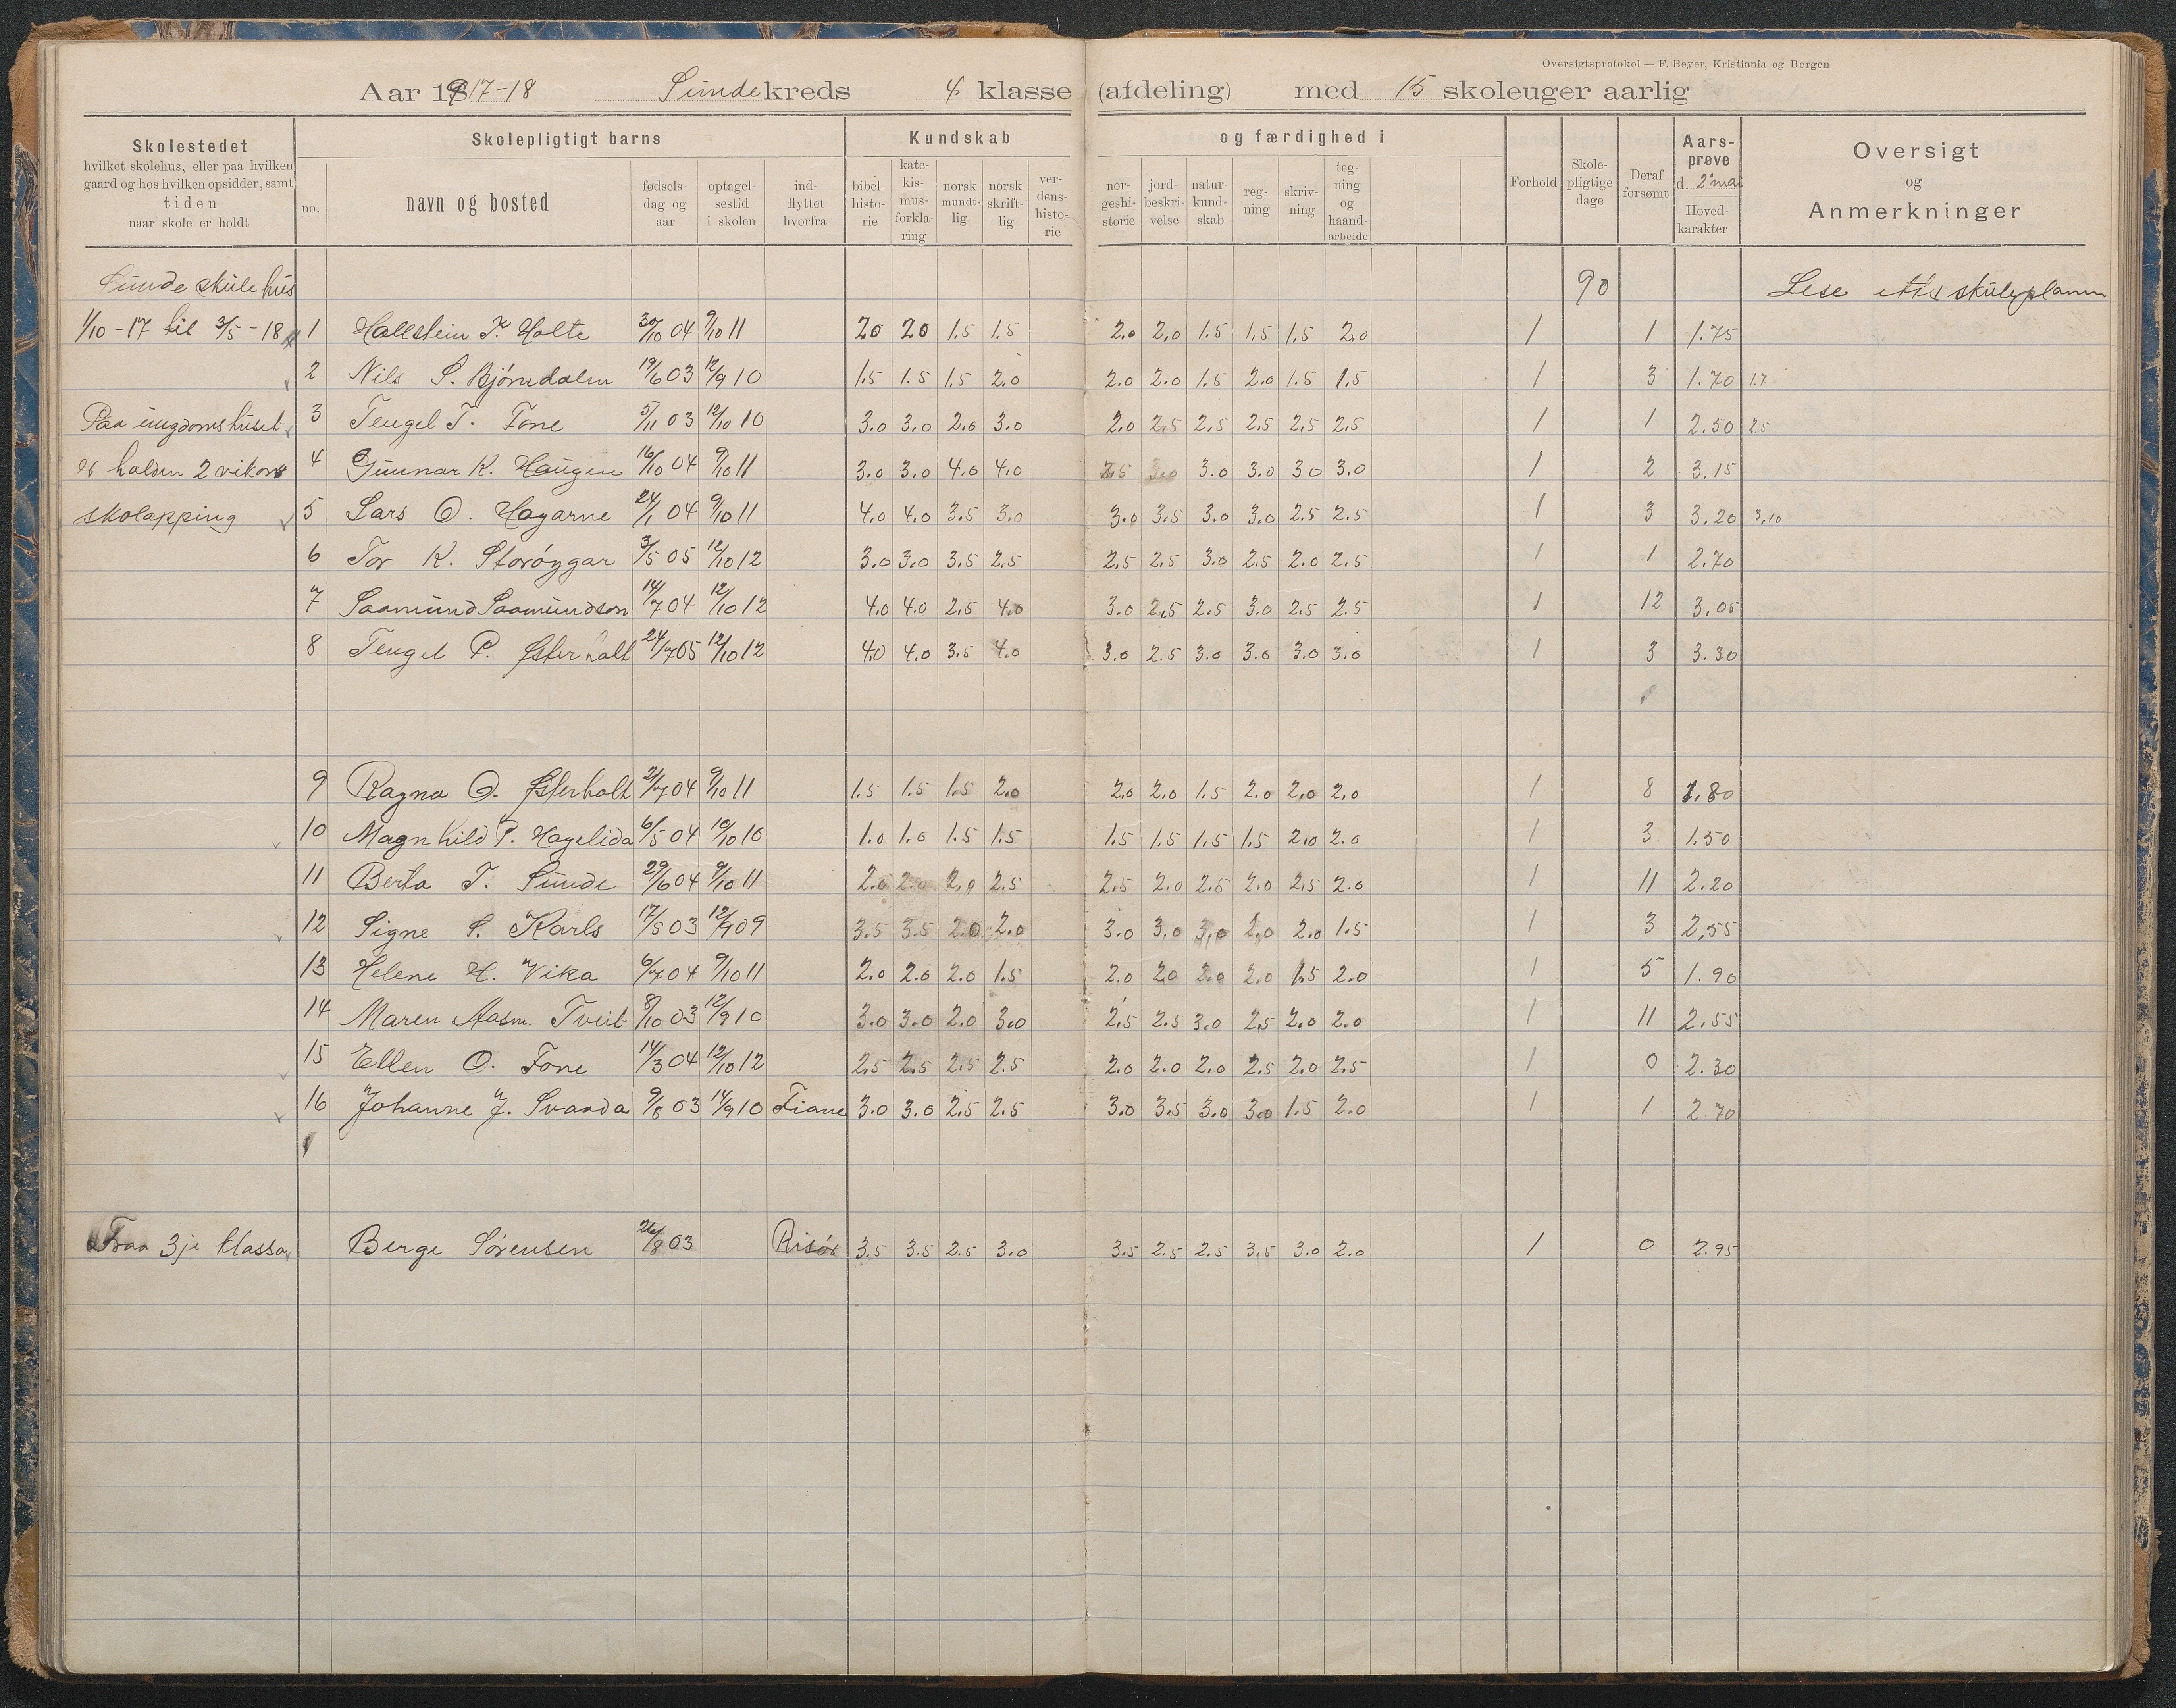 Oversigtsprotokol — F. Beyer, Kristiania og Bergen
Aar 1917-18 Sunde kreds 4 klasse (afdeling) med 15 skoleuger aarlig
Skolestedet
hvilket skolehus, eller paa hvilken
gaard og hos hvilken opsidder, samt
tiden
naar skole er holdt
Skolepligtigt barns
no.
navn og bosted
fødsels-
dag og
aar
optagel-
sestid
i skolen
ind-
flyttet
hvorfra
Kundskab
bibel-
histo-
rie
kate-
kis-
mus-
forkla-
ring
norsk
mundt-
lig
norsk
skrift-
lig
ver-
dens-
histo-
rie
og færdighed i
nor-
geshi-
storie
jord-
beskri-
velse
natur-
kund-
skab
reg-
ning
skriv-
ning
teg-
ning
og
haand-
arbeide
Forhold
Skole-
pligtige
dage
Deraf
forsømt
Aars-
prøve
d. 2 mai
Hoved-
karakter
Oversigt
og
Anmerkninger
Sunde skule hus 90 Lese etter skuleplanen
1/10-17 til 3/5-18 1 Hallstein T. Holte 30/10 04 9/10 11 2.0 2.0 1.5 1.5 2.0 2.0 1.5 1.5 1.5 2.0 1 1 1.75
2 Nils S. Bjørndalen 19/6 03 12/9 10 1.5 1.5 1.5 2.0 2.0 2.0 1.5 2.0 1.5 1.5 1 3 1.70 1.7
Paa ungdomshuset 3 Tengel T. Fone 5/11 03 12/10 10 3.0 3.0 2.0 3.0 2.0 2.5 2.5 2.5 2.5 2.5 1 1 2.50 2.5
er halden 2 vikors 4 Gunnar K. Haugen 16/10 04 9/10 11 3.0 3.0 4.0 4.0 2.5 3.0 3.0 3.0 3.0 3.0 1 2 3.15
skolapping 5 Lars O. Hagarne 24/1 04 9/10 11 4.0 4.0 3.5 3.0 3.0 3.5 3.0 3.0 2.5 2.5 1 3 3.20 3.10
6 Tor K. Storøygar 3/5 05 12/10 12 3.0 3.0 3.5 2.5 2.5 2.5 3.0 2.5 2.0 2.5 1 1 2.70
7 Saamund Saamundson 14/7 04 12/10 12 4.0 4.0 2.5 4.0 3.0 2.5 2.5 3.0 2.5 2.5 1 12 3.05
8 Tengel P. Østerholt 24/7 05 12/10 12 4.0 4.0 3.5 4.0 3.0 2.5 3.0 3.0 3.0 3.0 1 3 3.30
9 Ragna O. Østerholt 21/7 04 9/10 11 1.5 1.5 1.5 2.0 2.0 2.0 1.5 2.0 2.0 2.0 1 8 1.80
10 Magnhild P. Hagelida 6/5 04 10/10 10 1.0 1.0 1.5 1.5 1.5 1.5 1.5 1.5 2.0 2.0 1 3 1.50
11 Berta T. Sunde 29/6 04 9/10 11 2.0 2.0 2.0 2.5 2.5 2.0 2.5 2.0 2.5 2.0 1 11 2.20
12 Signe S. Karls 17/5 03 12/9 09 3.5 3.5 2.0 2.0 3.0 3.0 3.0 2.0 2.0 1.5 1 3 2,55
13 Helene H. Vika 6/7 04 9/10 11 2.0 2.0 2.0 1.5 2.0 2.0 2.0 2.0 1.5 2.0 1 5 1.90
14 Maren Aasm. Tveit 8/10 03 12/9 10 3.0 3.0 2.0 3.0 2.5 2.5 3.0 2.5 2.0 2.0 1 11 2.55
15 Ellen O. Fone 14/3 04 12/10 12 2.5 2.5 2.5 2.5 2.0 2.0 2.0 2.5 2.0 2.5 1 0 2.30
16 Johanne J. Svarda 9/8 03 14/9 10 Fiane 3.0 3.0 2.5 2.5 3.0 3.5 3.0 3.0 1.5 2.0 1 1 2.70
Fraa 3je klassa Berge Sørensen 26/8 03 Risør 3.5 3.5 2.5 3.0 3.5 2.5 2.5 3.5 3.0 2.0 1 0 2.95